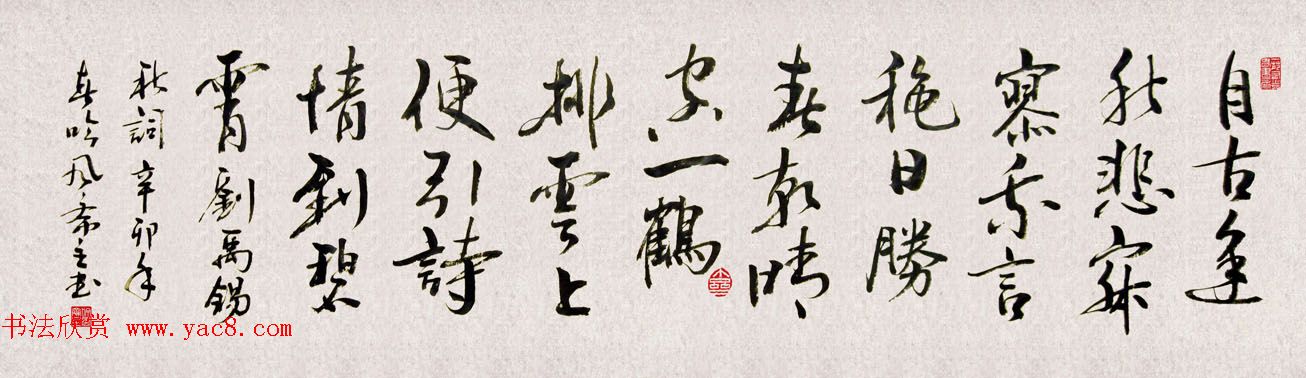 自古逢
秋悲寂
寥我言
穐日勝
春朝晴
空一鶴
排雲上
便引詩
情到碧
霄劉禹錫
秋詞辛卯年
春吟风斋主书
书法欣赏 www.yac8.com